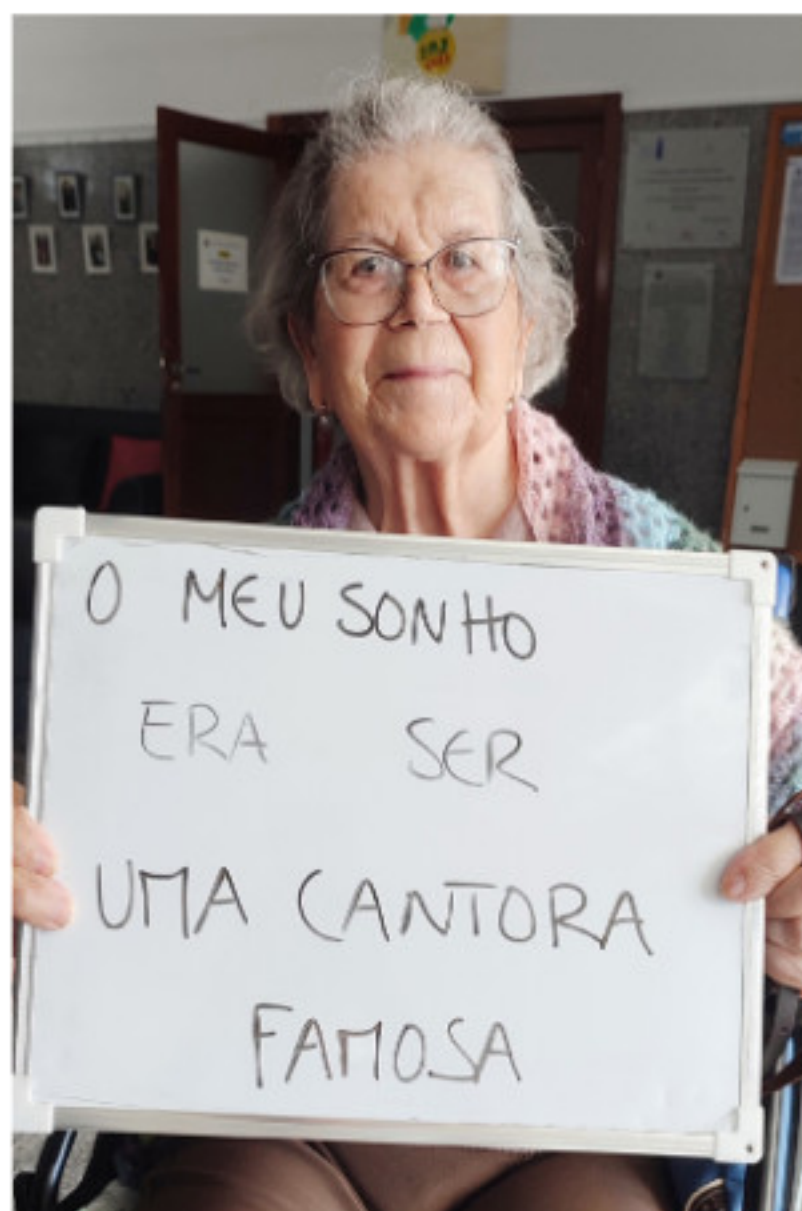 O MEU SONHO
ERA SER
UMA CANTORA
FAMOSA